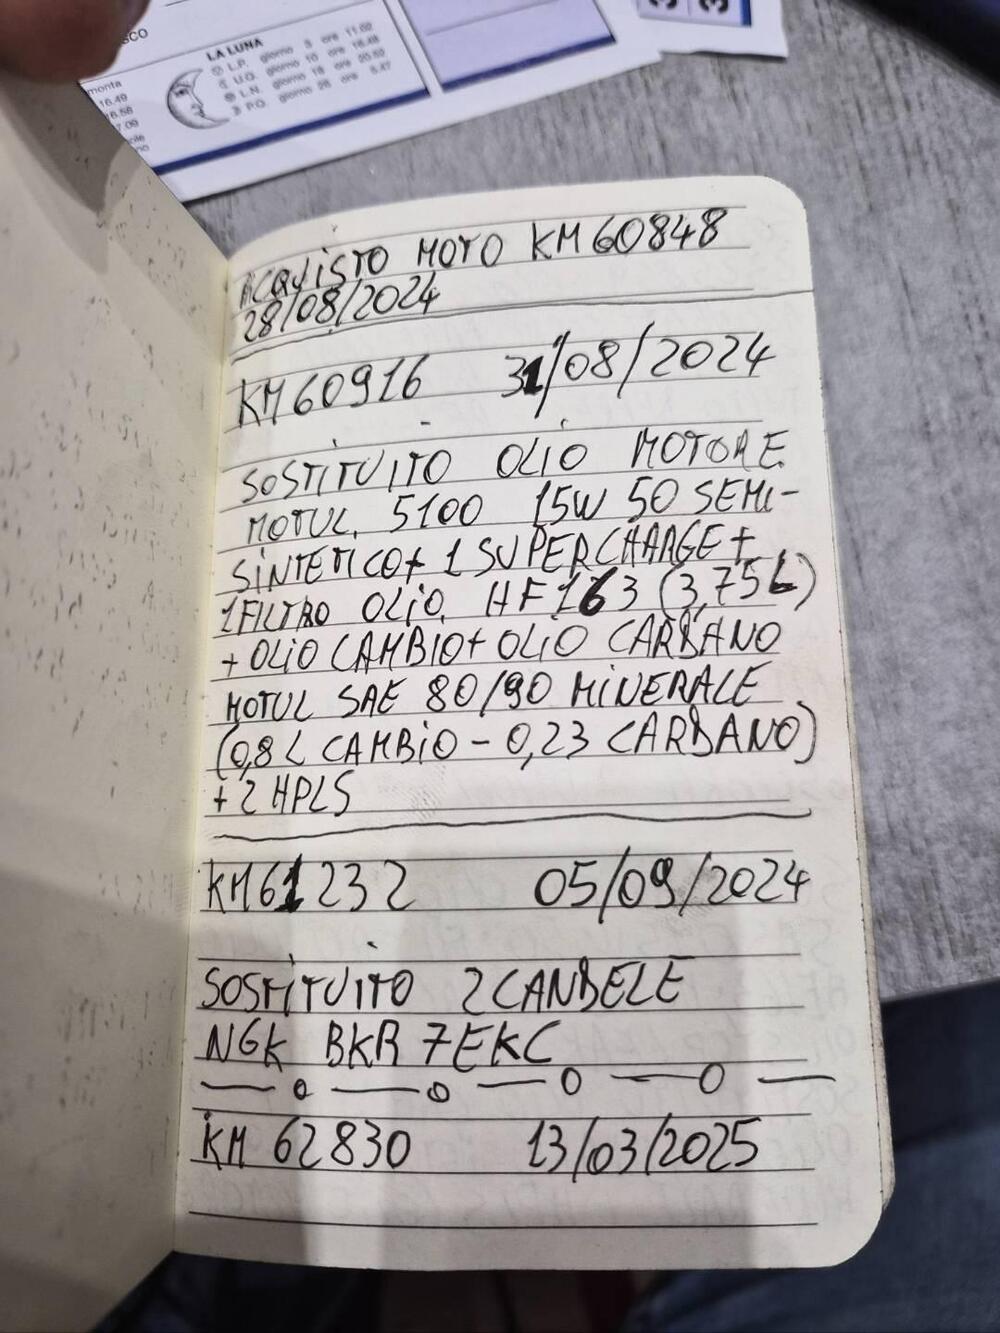 SCO
LA LUNA
L.P. giorno 3 ore 11.02
U.Q. giorno 10 ore 16.48
L.N. giorno 18 ore 20.52
P.Q. giorno 26 ore 5.47
monta
16.49
16.58
7.09
3 3
ACQUISTO MOTO KM60848
28/08/2024
KM60916 31/08/2024
SOSTITUITO OLIO MOTORE
MOTUL 5100 15W 50 SEMI-
SINTETICO+ 1 SUPERCHARGE +
1 FILTRO OLIO HF163 (3,75L)
+ OLIO CAMBIO + OLIO CARDANO
MOTUL SAE 80/90 MINERALE
(0,8 L CAMBIO - 0,23 CARDANO)
+ 2 HPLS
KM61232 05/09/2024
SOSTITUITO 2 CANDELE
NGK BKR 7EKC
KM 62830 13/03/2025